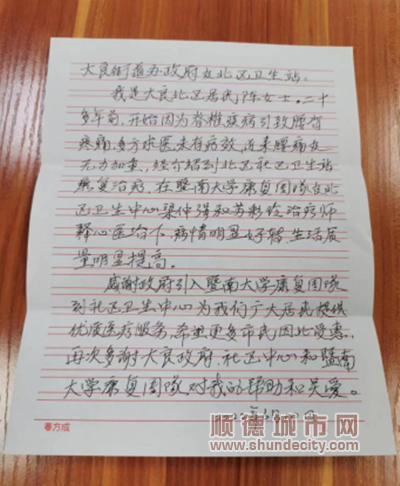 大良街道办政府友北区卫生站:
我是大良北区居民陈女士。二十
多年前,开始因为脊椎疾病引致腰背
疼痛,多方求医未有疗效,近来腰痛友
无力加重,经介绍到北区社区卫生站
康复治疗,在暨南大学康复团队在北
区卫生中心梁仲强和苏彩玲治疗师
释心医治下,病情明显好转,生活质
量明显提高。
感谢政府引入暨南大学康复团队
到社区卫生中心为我们广大居民提供
优质医疗服务,希望更多市民因此受惠,
再次多谢大良政府,社区中心和暨南
大学康复团队对我的帮助和关爱。
春方成
顺德城市网
www.shundecity.com